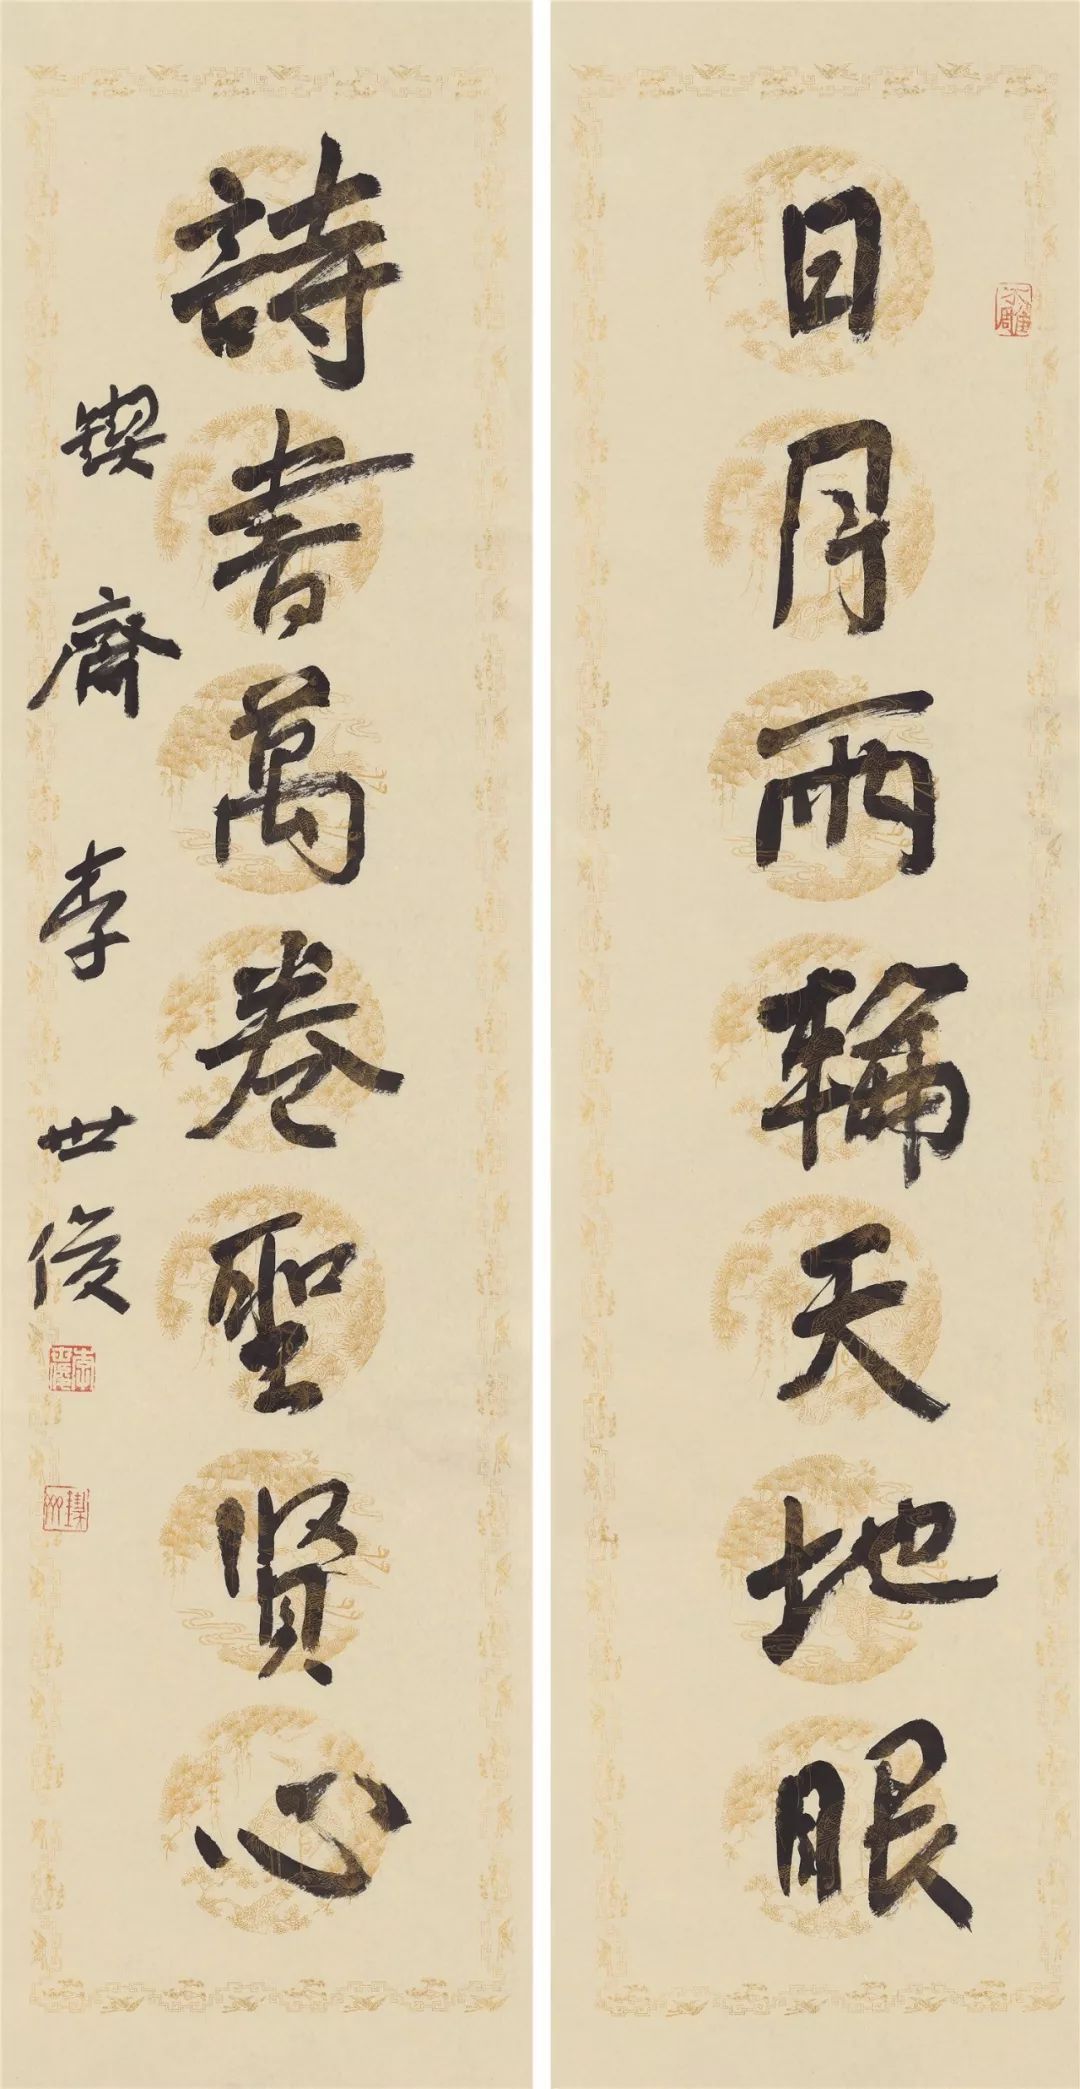 日月兩輪天地眼
詩書萬卷聖賢心
鍥齋李世俊